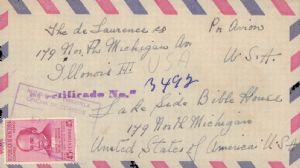 The de Laurence co
Por Avion
179 North Michigan Av
U.S.A
USA
Illinois Ill
3492
Certificado No.
Lake Side Bible House
179 North Michigan
United States of America U.S.A